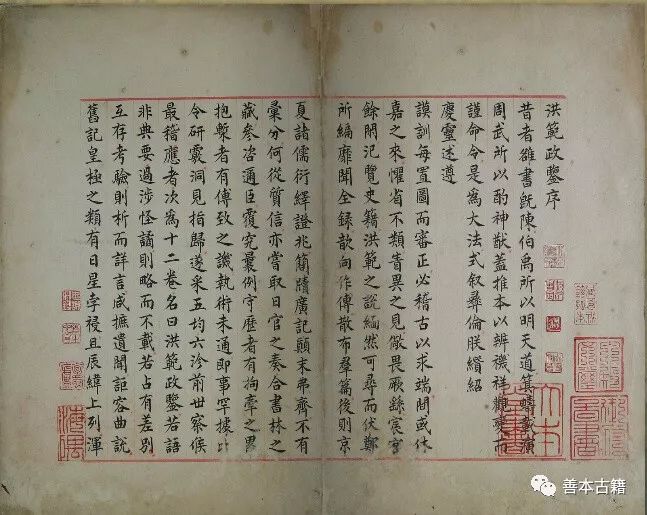 洪範政鑒序
昔者雒書旣陳伯禹所以明天道箕疇載演
周武所以酌神猷蓋推本以辨機祥觀變而
謹命令是爲大法式叙彝倫朕纘紹
慶靈述遵
謨訓每置圖而審正必稽古以求端間或休
嘉之來懼省不類眚異之見儆畏厥繇宸宫
餘閒汜覽史籍洪範之說緬然可尋而伏鄭
所編靡聞全録歆向作傳散布羣篇後則京
夏諸儒衍繹證兆簡牘廣記顛末弗齊不有
彙分何從質信亦嘗取日官之奏合書林之
藏參咨通臣覆究曩例守歷者有拘牽之畏
抱槧者有傅致之譏執術未通即事罕據
令研覈洞見指歸遂采五均六沴前世察候
最稽應者次爲十二卷名曰洪範政鑒若語
非典要過涉怪譎則略而不載若占有差別
互存考驗則析而詳言咸摭遺聞詎容曲說
舊記皇極之類有日星孛祲且辰緯上列渾
善本古籍